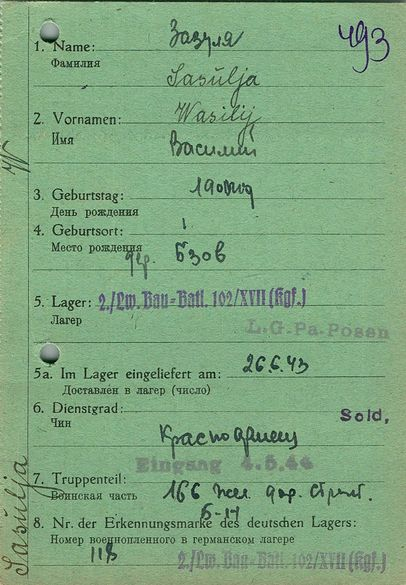 493
1. Name: Зазуля
Фамилия
Sasulja
2. Vornamen: Wasilij
Имя
Василий
3. Geburtstag: 1900 год
День рождения
4. Geburtsort:
Место рождения
дер. Бзов
5. Lager: 2./Lw. Bau=Batl. 102/XVII (Kgf.)
Лагер
L.G.Pa.Posen
5a. Im Lager eingeliefert am: 26.6.43
Доставлен в лагер (число)
6. Dienstgrad: Sold,
Чин
Красноармеец
Eingang 4.5.44
7. Truppenteil:
Воинская часть 166 жел. дор. стрел.
8. Nr. der Erkennungsmarke des deutschen Lagers:
Номер военнопленного в германском лагере
118
2./Lw. Bau=Batl. 102/XVII (Kgf.)
W
Sasulja